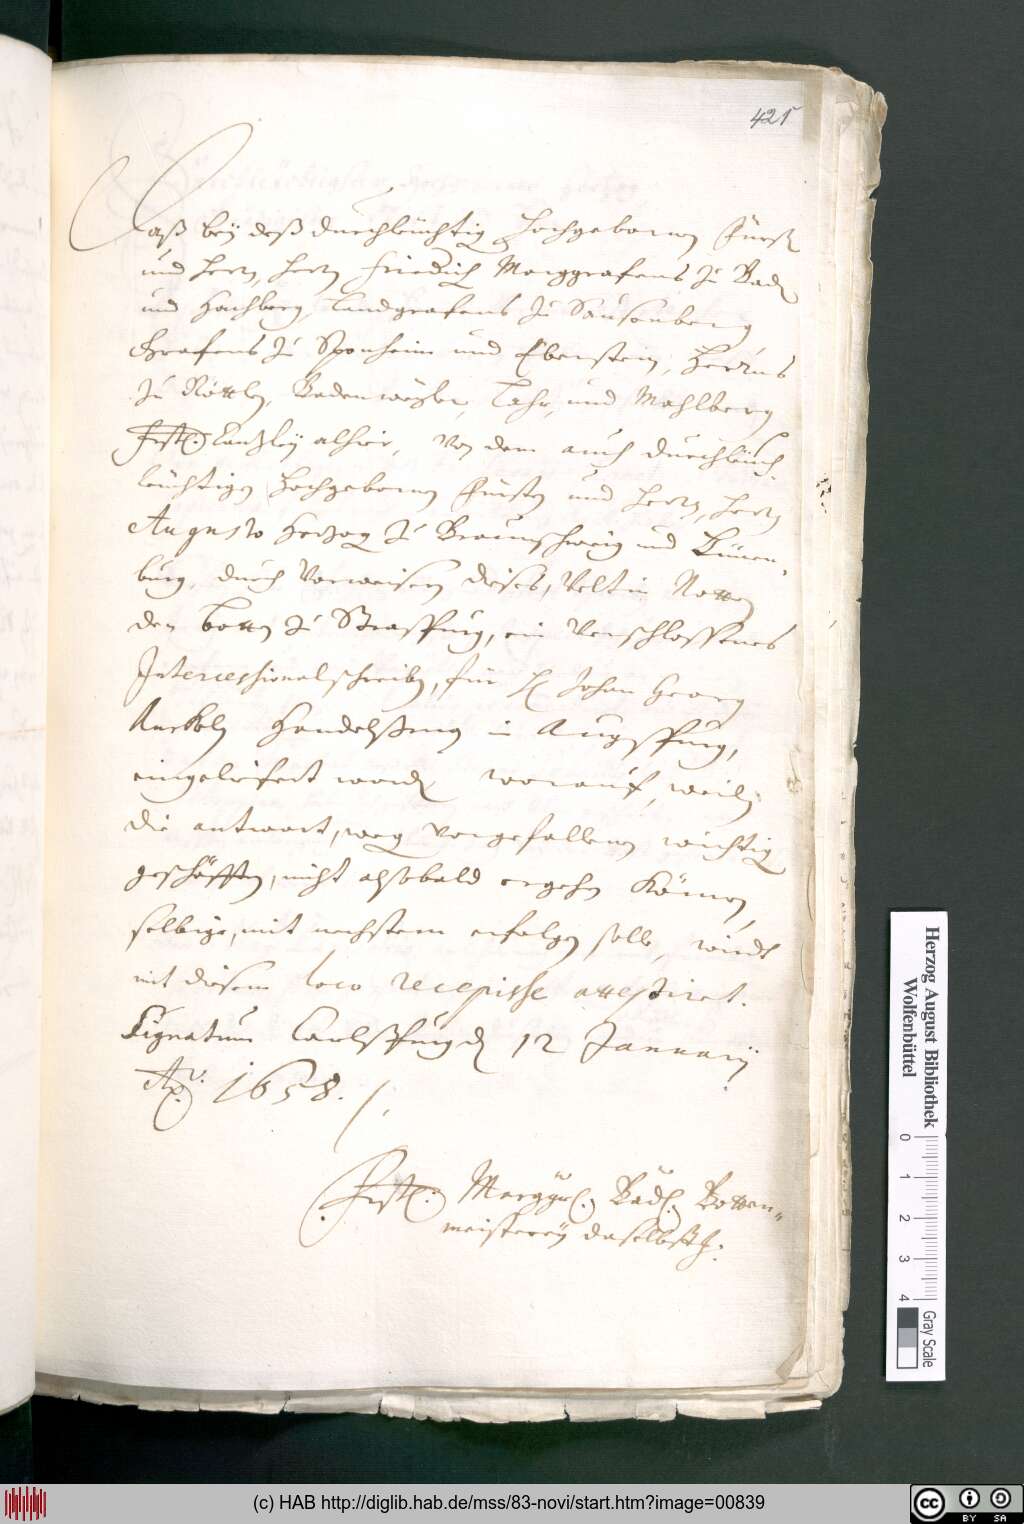 421
Daß bey deß durchleüchtig Hochgebornen Fürst
und Herrn, Herrn Friedrich Marggrafens zu Bad
und Hachberg, Landgrafens zu Sausenberg
Grafens zu Sponheim und Eberstein, Herrns
zu Röttlen, Badenweyler, Lahr, und Mahlberg
Frstl: Cantzley alhier, von dem auch durchleüch-
leüchtigen Hochgebornen Fürsten und Herrn, Herrn
Augusto Hertzog zu Braunschweig und Lünen-
burg, durch Vorweisern dieses, Veltin Rotten
den Botten zu Straßburg, ein Verschlossenes
Intercessionalschreiben, für H Johan Georg
Anckeln Handelßman in Augspurg,
eingelifert worden worauf, weiln
die antwort, weg vorgefallenen wichtig
geschäfften, nicht alsobald ergehen können,
selbige, mit nechstem erfolgen solle, würdt
mit diesem loco recepisse attestiret.
Signatum Carlspurg d 12 January
Ao. 1658.
Frstl: Marggrl: Badl: Botten-
meisterey daselbsten.
Herzog August Bibliothek
Wolfenbüttel
0 1 2 3 4
Gray Scale
(c) HAB http://diglib.hab.de/mss/83-novi/start.htm?image=00839
cc BY SA